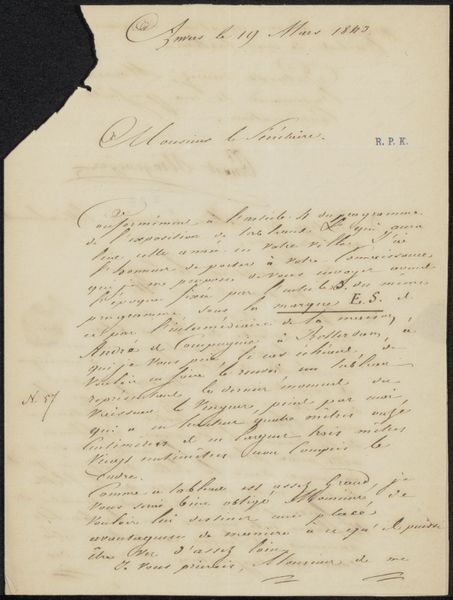 Anvers le 19 Mars 1843.
Monsieur le Secrétaire.
R. P. K.
Conformément à l'article 4 du programme
de l'exposition de tableaux qui aura
lieu cette année en votre ville, j'ai
l'honneur de porter à votre connaissance
que je me propose de vous envoyer avant
l'époque fixée par l'article 3. du même
programme, sous la marque E. S. et
ce par l'intermédiaire de la maison,
André et Compagnie, à Rotterdam, à
qui je vous prie, le cas échéant, de
vouloir en faire le renvoi un tableau
représentant le dernier moment du
N. 57
Vaisseau le Vengeur, peint par moi,
qui a en hauteur quatre mètres onze
centimètres et en largeur trois mètres
vingt centimètres non compris le
cadre.
Comme ce tableau est assez grand, je
vous serai bien obligé, Monsieur, de
vouloir lui destiner une place
avantageuse de manière à ce qu'il puisse
être vu d'assez loin.
Je vous prierais, Monsieur, de me